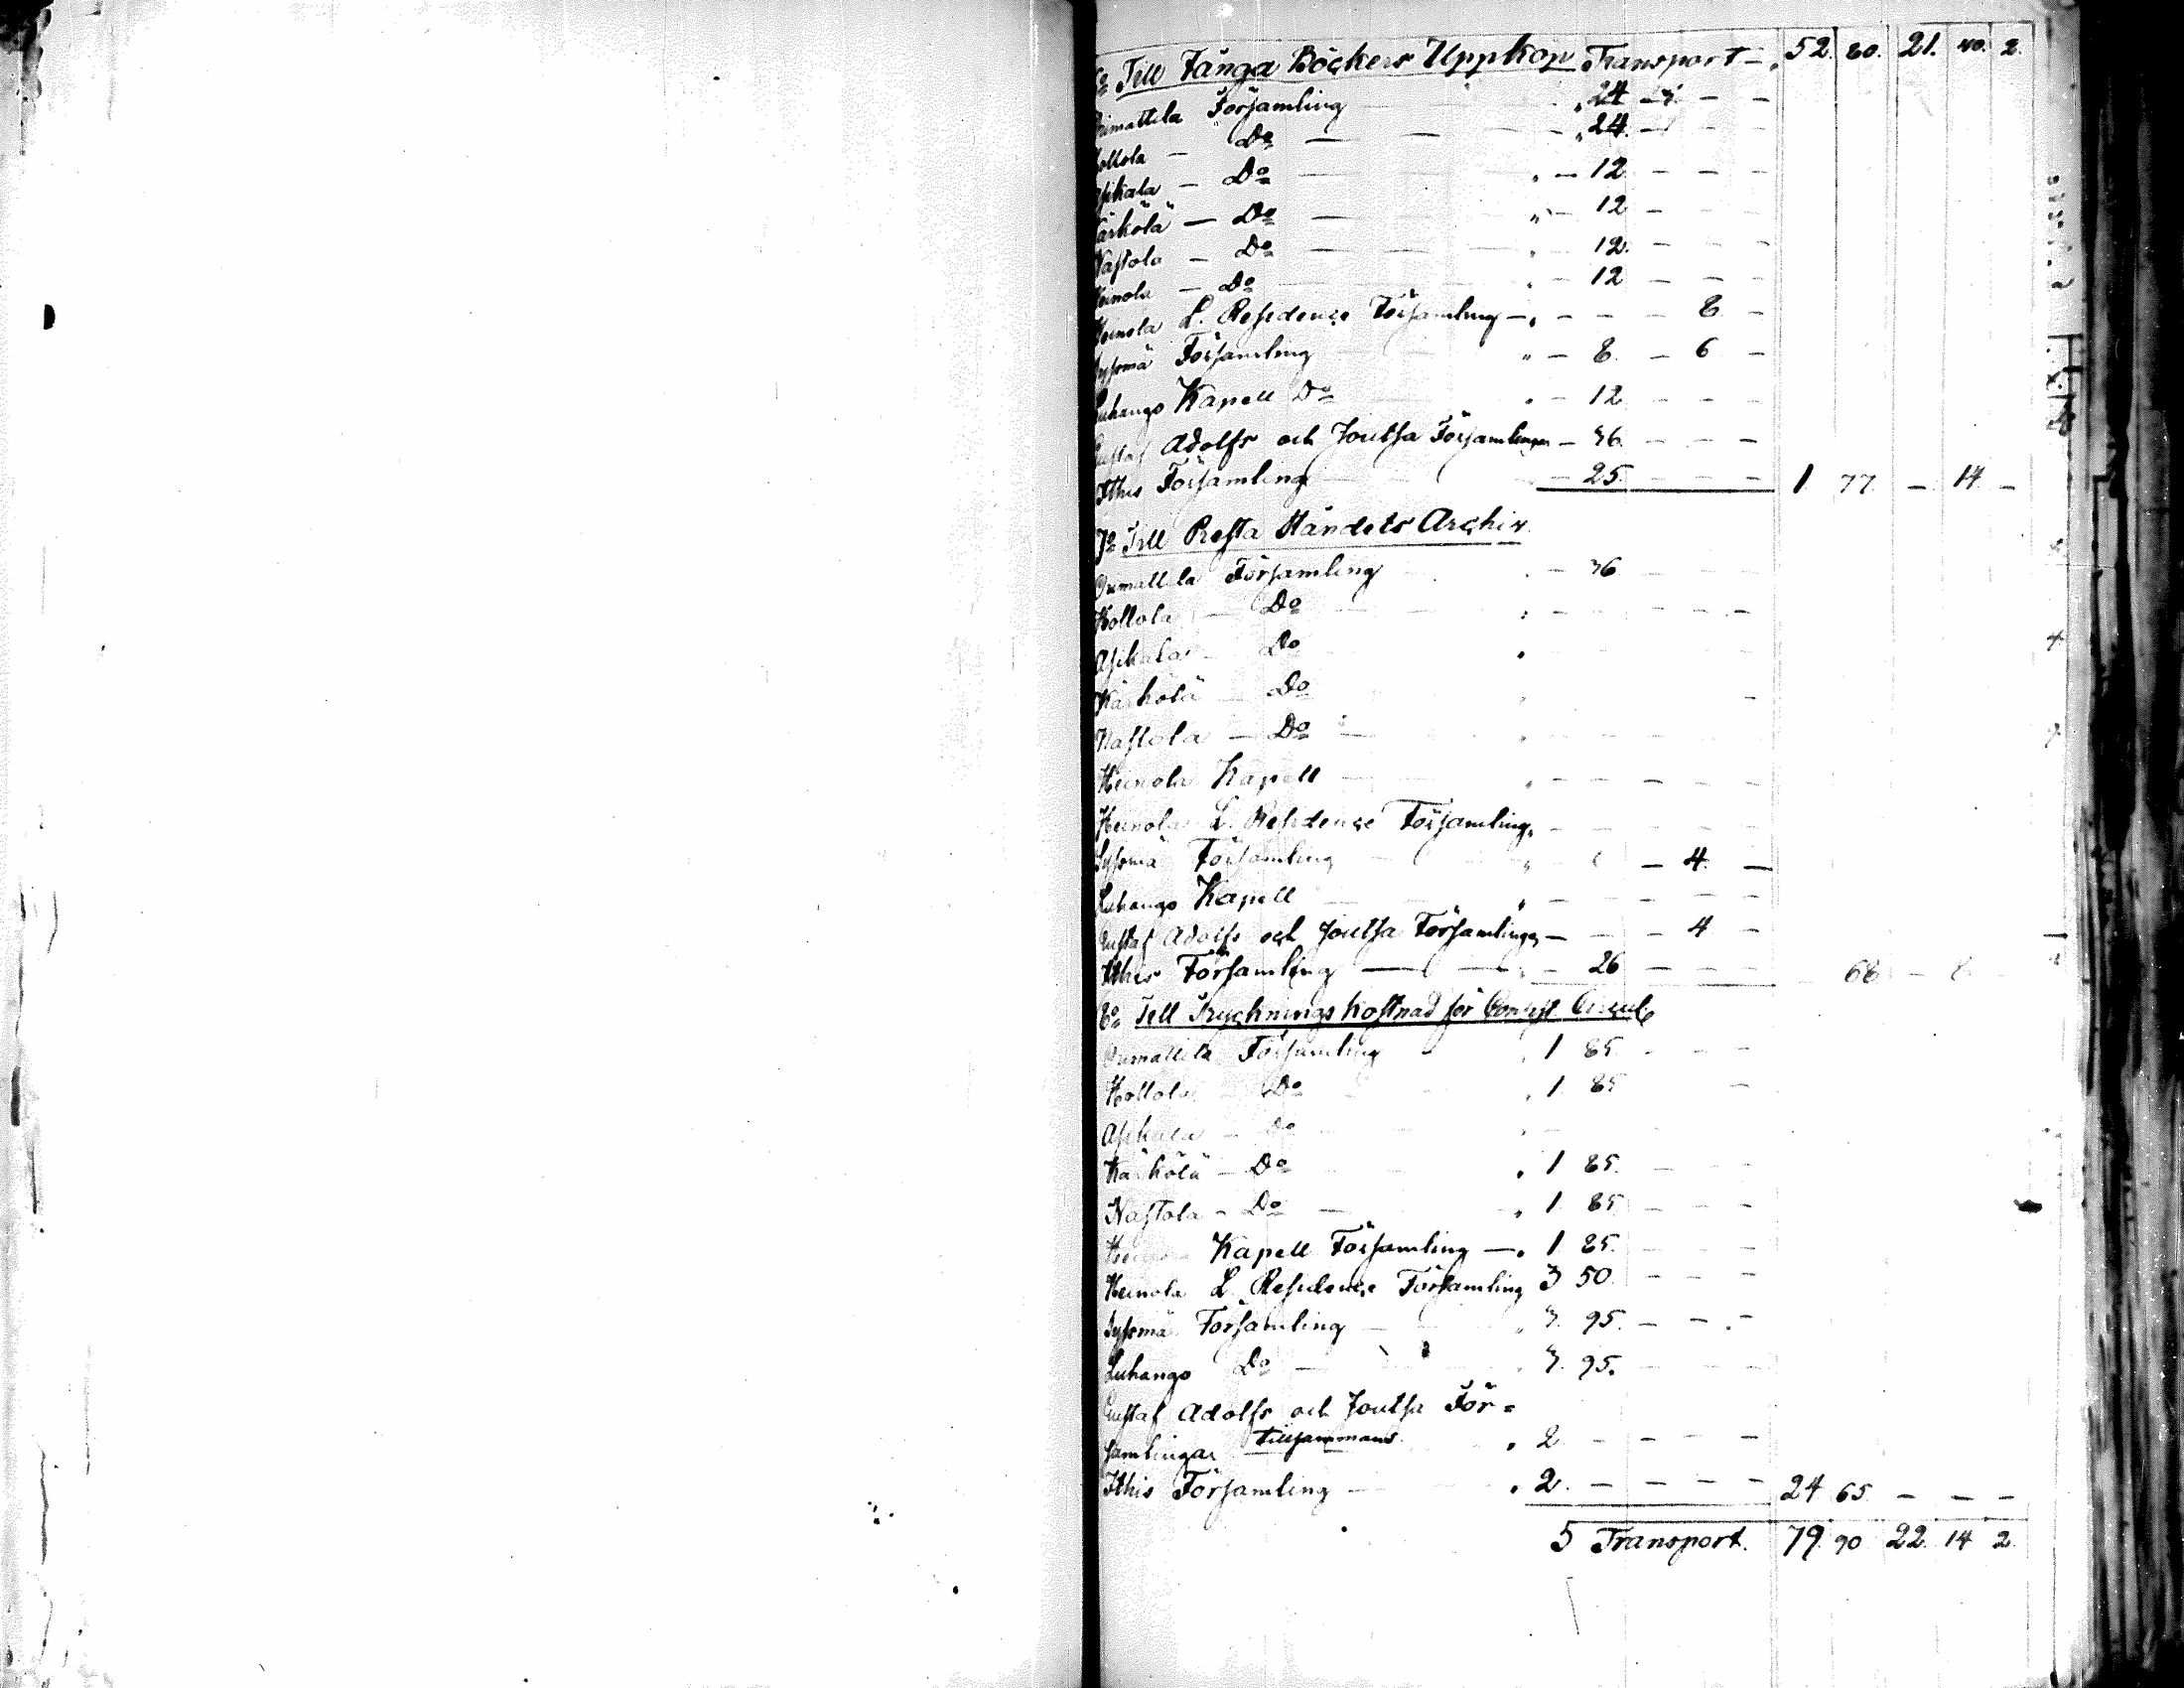 6o Till Fånga Böckers Uppköp Transport — 52. 80. 21. 40. 2.
Orimattila Församling " 24 — 3. — —
Hollola — Do — — " 24. — — —
Asikala — Do " — 12 — — —
Kärkölä — Do — " — 12 — — —
Nastola — Do — " — 12. — — —
Heinola — Do " — 12 — — —
Heinola L. Residence Församling — " — — — 8 —
Syssmä Församling " — 8. — 6 —
Luhango Kapell Do " — 12 — — —
Gustaf Adolfs och Joutsa Församlingar — 36. — — —
Ithis Församling — 25. — — — 1 77. — 14. —
7o Till Presta Ståndets Archiv.
Orimattila Församling " — 36 — — —
Hollola — Do " — — — — —
Asikala — Do "
Kärkölä — Do " —
Nastola — Do — " — — — — —
Heinola Kapell — " — — — — —
Heinola L. Residence Församling " — — — — —
Syssmä Församling " — 6 — 4. —
Luhango Kapell " — — — — —
Gustaf Adolfs och Joutsa Församlingar — — — 4 —
Ithis Församling — — " — 26 — — — 68 — 8 —
8o Till Tryckningskostnad för Consist. Circul.
Orimattila Församling " 1 85. — — —
Hollola Do " 1 85 —
Asikala — Do " —
Kärkölä — Do " 1 85. — — —
Nastola — Do — " 1 85. — — —
Kapell Församling — " 1 85. — — —
Heinola L. Residence Församling 3 50. — — —
Syssmä Församling — " 3. 95. — — —
Luhango Do — " 3. 95. — — —
Gustaf Adolfs och Joutsa För=
samlingar tillsammans " 2 — — — —
Ithis Församling — " 2. — — — — 24 65 — — —
5 Transport. 79. 90 22. 14 2.